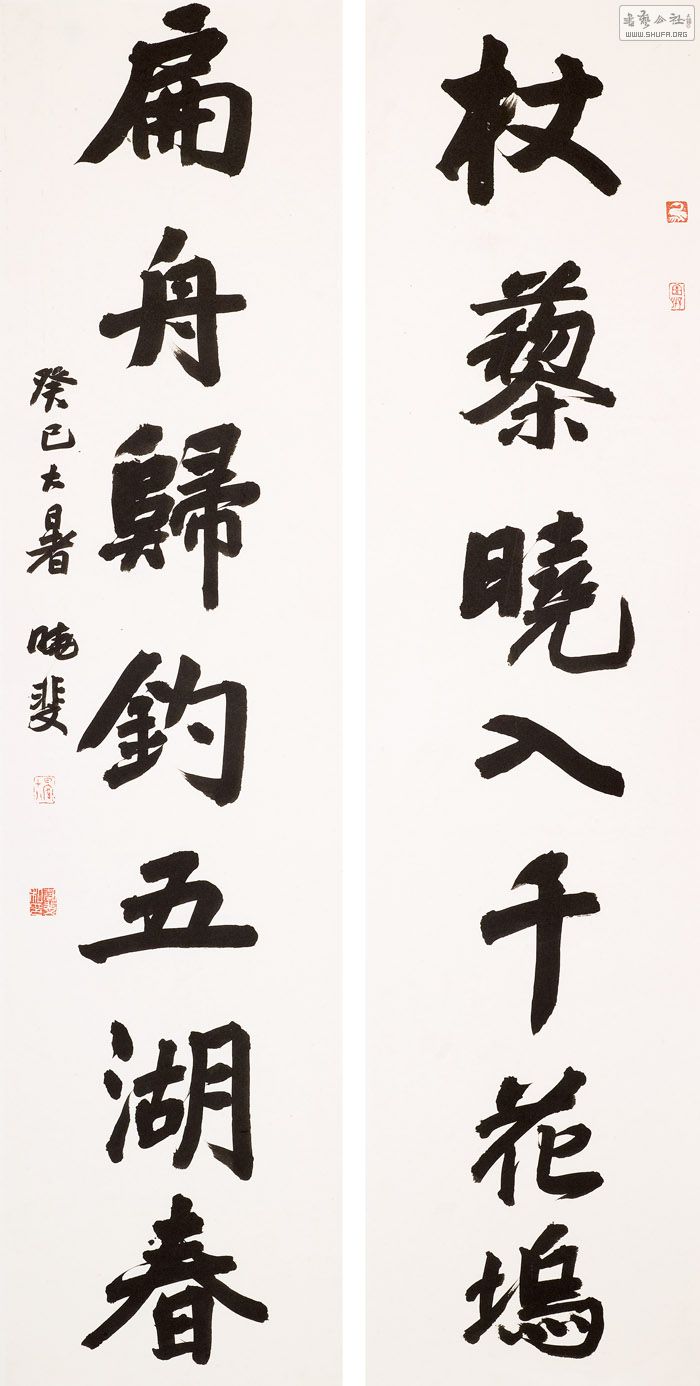 杖藜曉入千花塢
扁舟歸釣五湖春
癸巳大暑 晓斐
書藝公社
WWW.SHUFA.ORG